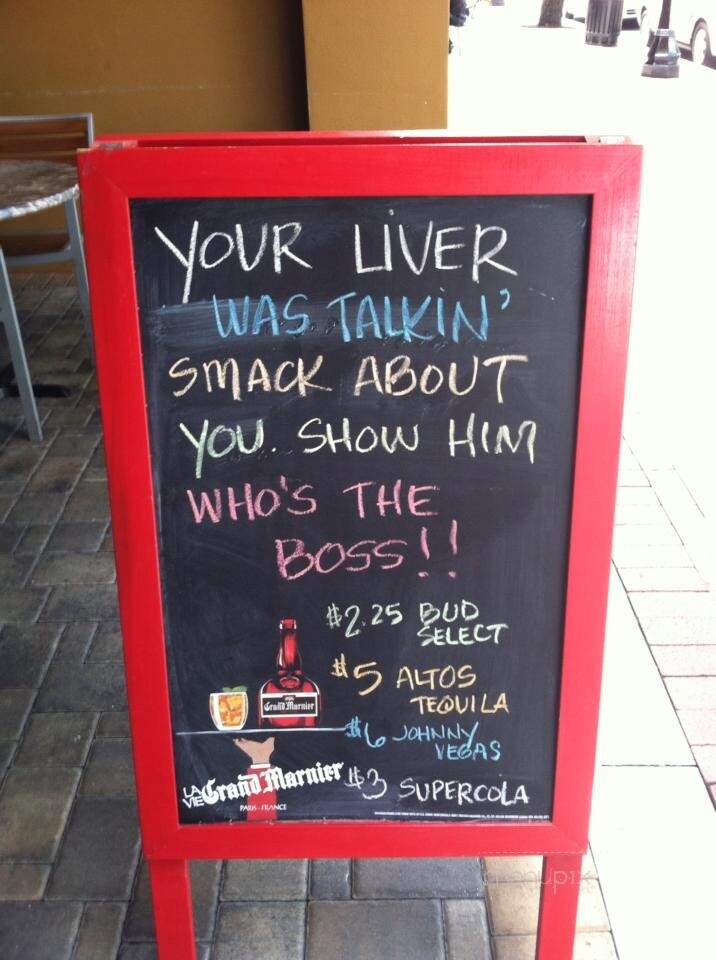 YOUR LIVER
WAS TALKIN'
SMACK ABOUT
YOU. SHOW HIM
WHO'S THE
BOSS!!
$2.25 BUD
SELECT
$5 ALTOS
TEQUILA
$6 JOHNNY
VEGAS
$3 SUPERCOLA
Grand Marnier
LA
VIE Grand Marnier
PARIS - FRANCE